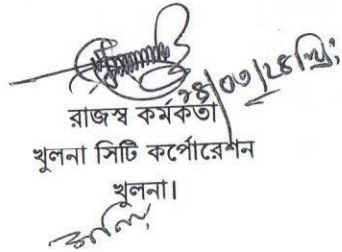 ২৪/০৩/২৪ খ্রি:
রাজস্ব কর্মকর্তা
খুলনা সিটি কর্পোরেশন
খুলনা।